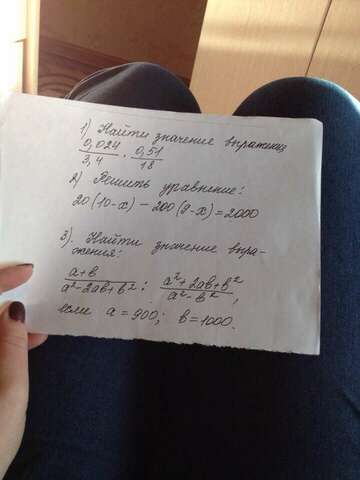 1) Найти значение выражения
0,024/3,4 · 0,51/18
2) Решить уравнение:
20(10-x) - 200(9-x) = 2000
3). Найти значение выра-
жения:
a+b/a²-2ab+b² : a²+2ab+b²/a²-b²,
если a = 900; b = 1000.